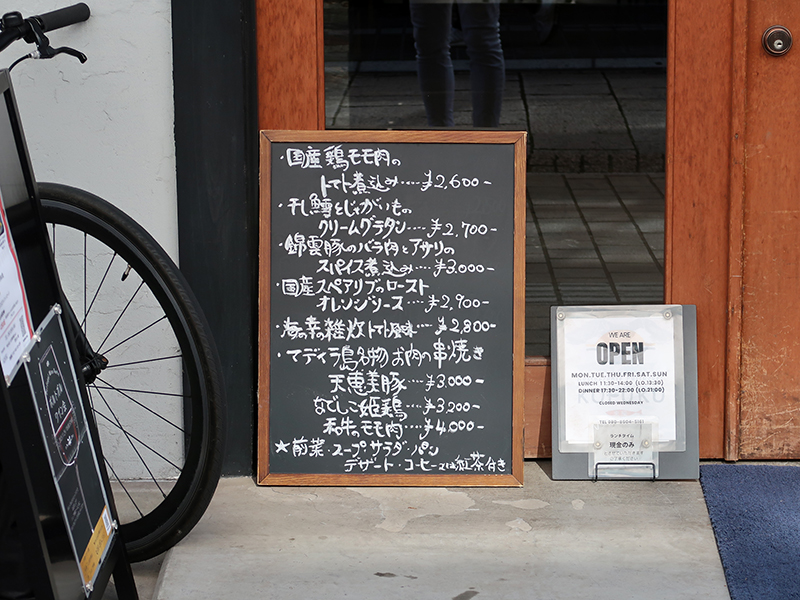 ・国産鶏モモ肉の
トマト煮込み‥‥¥2,600-
・干し鱈とじゃがいもの
クリームグラタン‥¥2,700-
・錦雲豚のバラ肉とアサリの
スパイス煮込み‥‥¥3,000-
・国産スペアリブのロースト
オレンジソース‥‥¥2,900-
・海の幸の雑炊トマト風味‥¥2,800-
・マディラ島名物お肉の串焼き
天恵美豚‥‥¥3,000-
なでしこ姫鶏‥‥¥3,200-
和牛のモモ肉‥‥¥4,000-
★前菜・スープ・サラダ・パン
デザート・コーヒー又は紅茶付き
WE ARE
OPEN
MON.TUE.THU.FRI.SAT.SUN
LUNCH 11:30-14:00 (LO.13:30)
DINNER 17:30-22:00 (LO.21:00)
CLOSED WEDNESDAY
ランチタイム
現金のみ